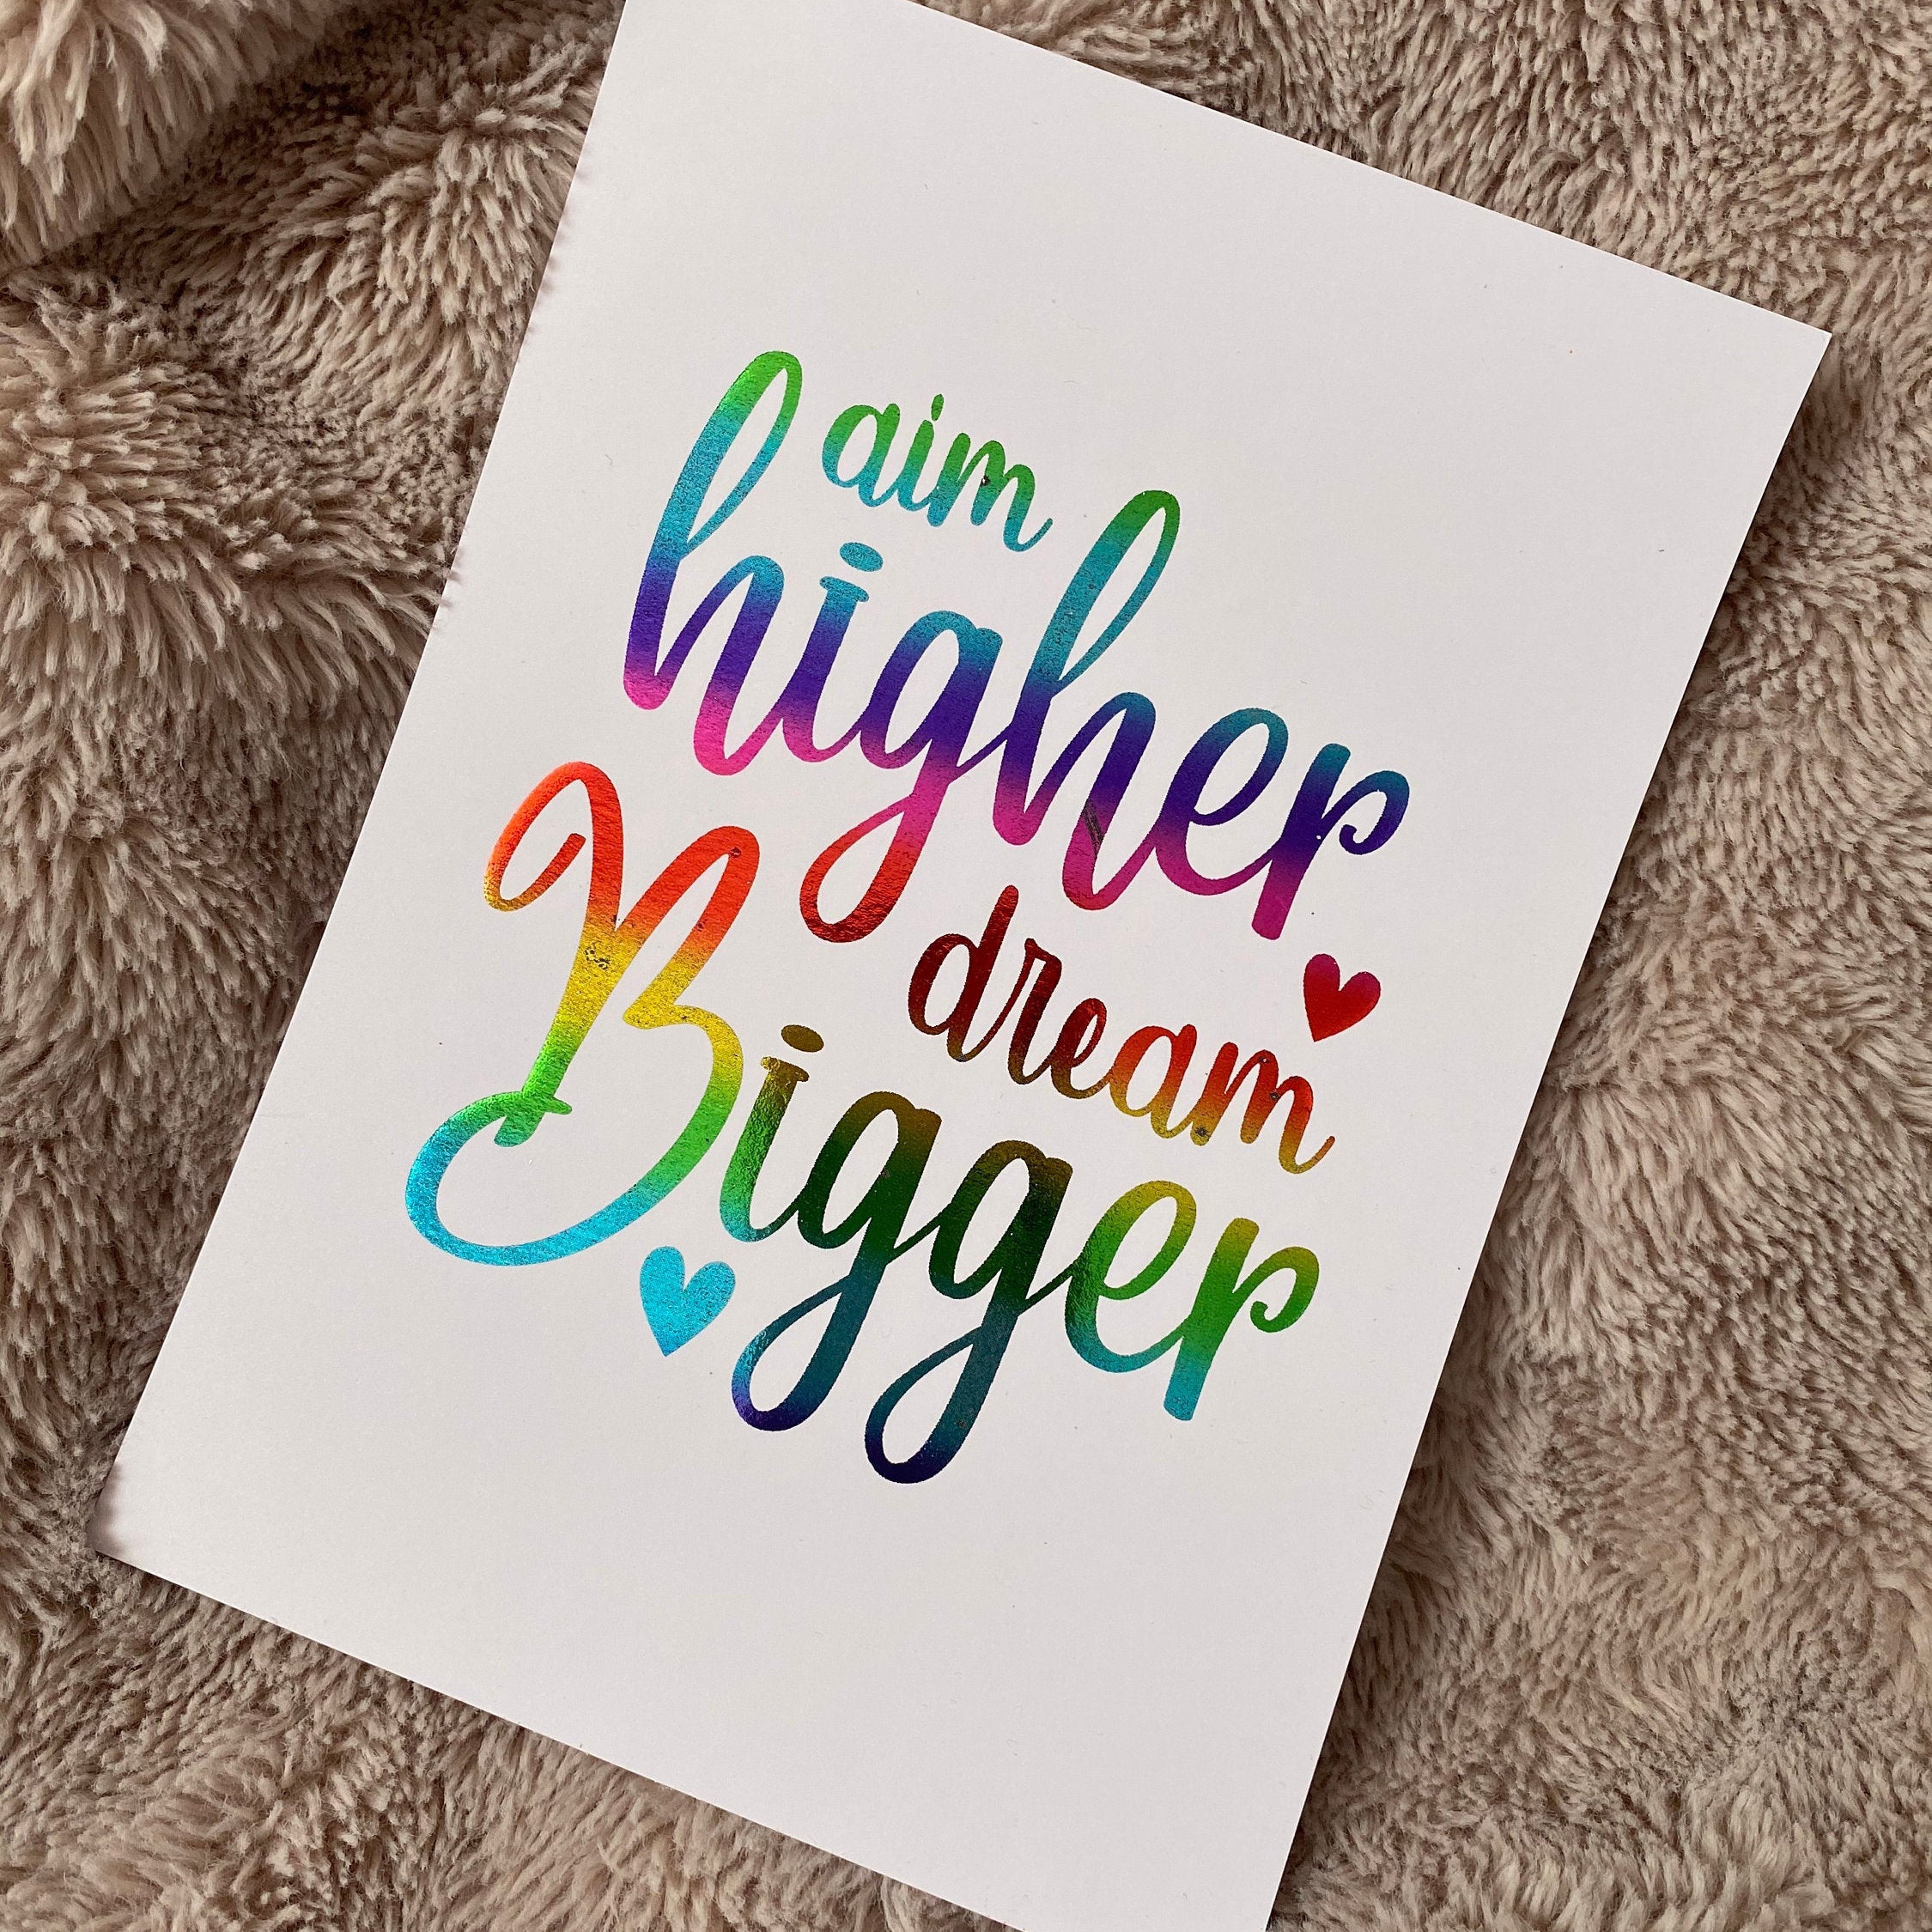 aim
higher
dream
Bigger